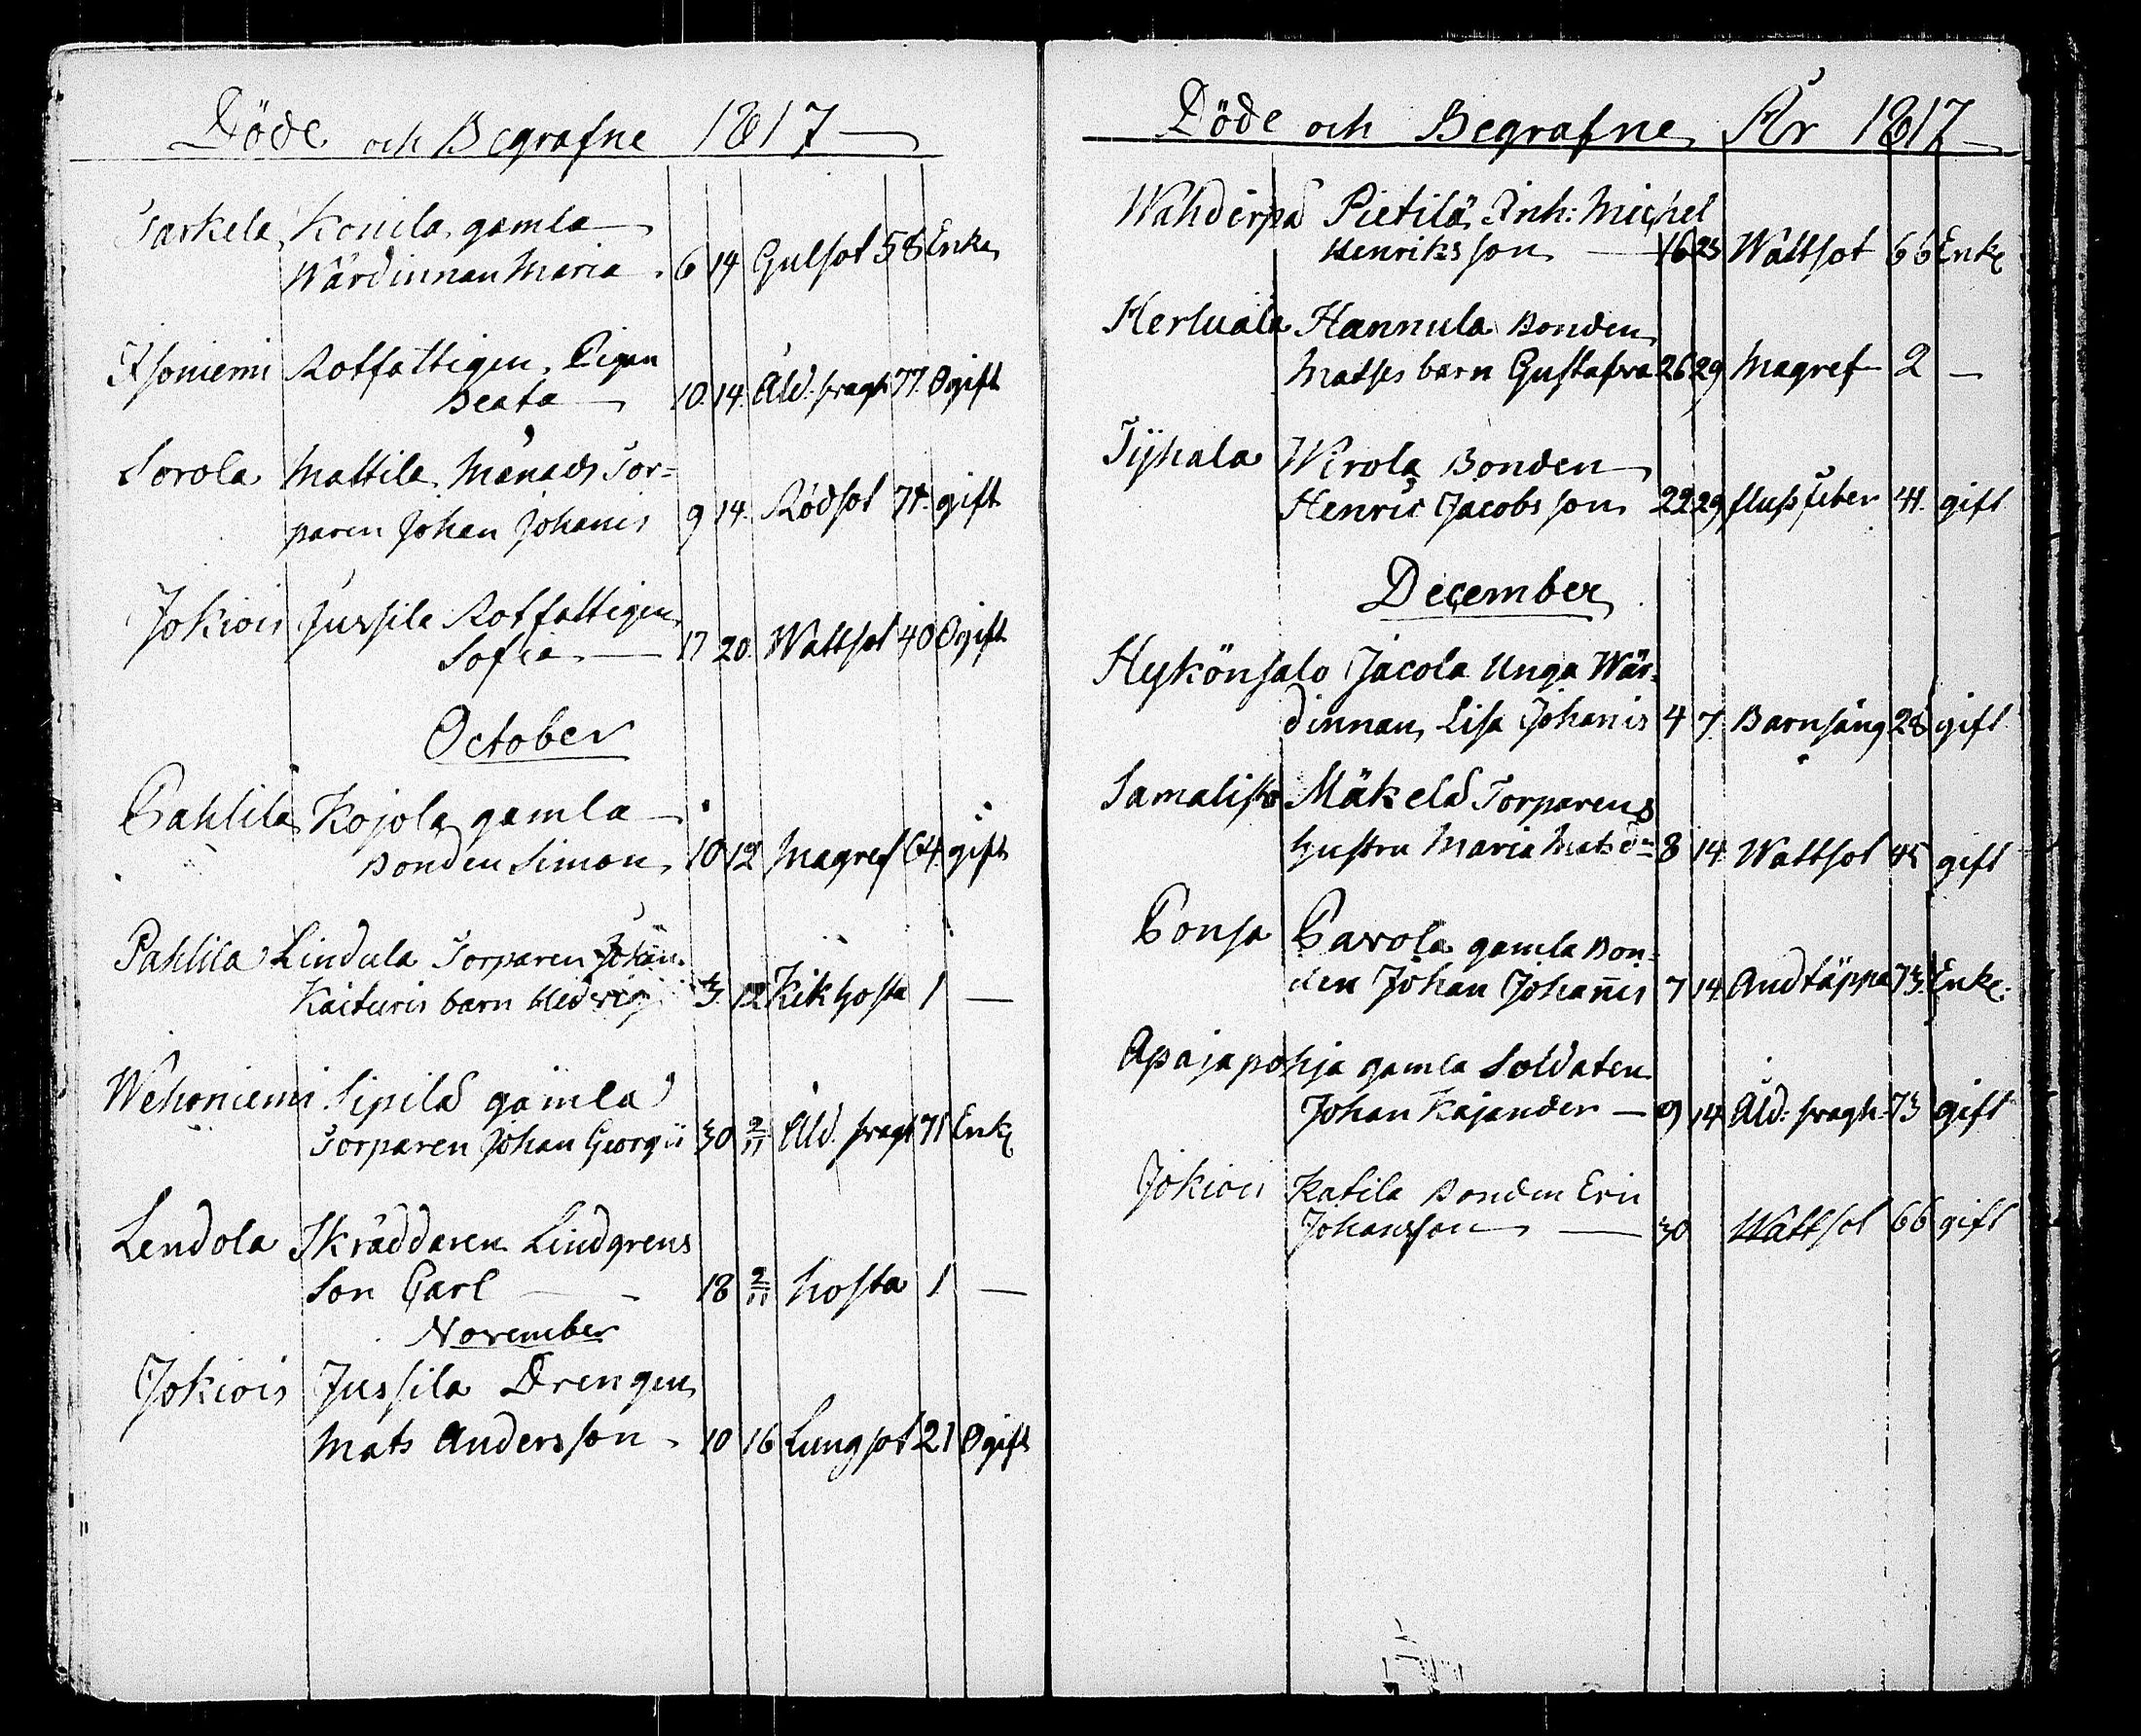 Döde och Begrafne 1817
Sarkela Konila gamla
Wärdinnan Maria 6 14 Gulsot 58 Enka
Isoniemi Rotfattigen, Pigan
Beata 10. 14. Åld: bragh 77. Ogift
Sorola Mattila Månads Tor-
paren Johan Johanis 9 14. Rödsot 74. gift
Jokiois Jussila Rotfattigen
Sofia 17 20. Wattsot 40 Ogift
October
Pahlila Kojola gamla
Bonden Simon 10 12 Magref 64. gift
Pahlila Lindula Torparen Johan
Kaituris barn Hedvig 3. 12 Kikhosta 1 —
Wehoniemi Sipilä gamla
Torparen Johan Georgii 30 2/11 Åld. bragh 71 Enkl
Lendola Skräddaren Lindgrens
Son Carl 18 2/11 hosta 1 —
November
Jokiois Jussila Drengen
Mats Andersson 10 16 Lungsot 21 Ogift
Döde och Begrafne År 1817
Wahderpä Pietilä Inh: Michel
Henriksson 16 23 Wattsot 66 Enkl
Herluala Hannula Bonden
Matses barn Gustafva 26 29 Magref 2 —
Tyhala Wirola Bonden
Henric Jacobsson 22 29 flussfeber 41. gift
December
Hykönsalo Jacola Unga Wär-
dinnan Lisa Johanis 4 7. Barnsäng 28 gift
Samalisto Mäkelä Torparens
hustru Maria Matsdr 8 14 Wattsot 45 gift
Ponsa Pavola gamla Bon-
den Johan Johannis 7 14. Andtäppa 73. Enkl.
Apajapohja gamla Soldaten
Johan Kajander — 9 14 Åld: bragh 73 gift
Jokiois Katila Bonden Eric
Johansson — 30 Wattsot 66 gift